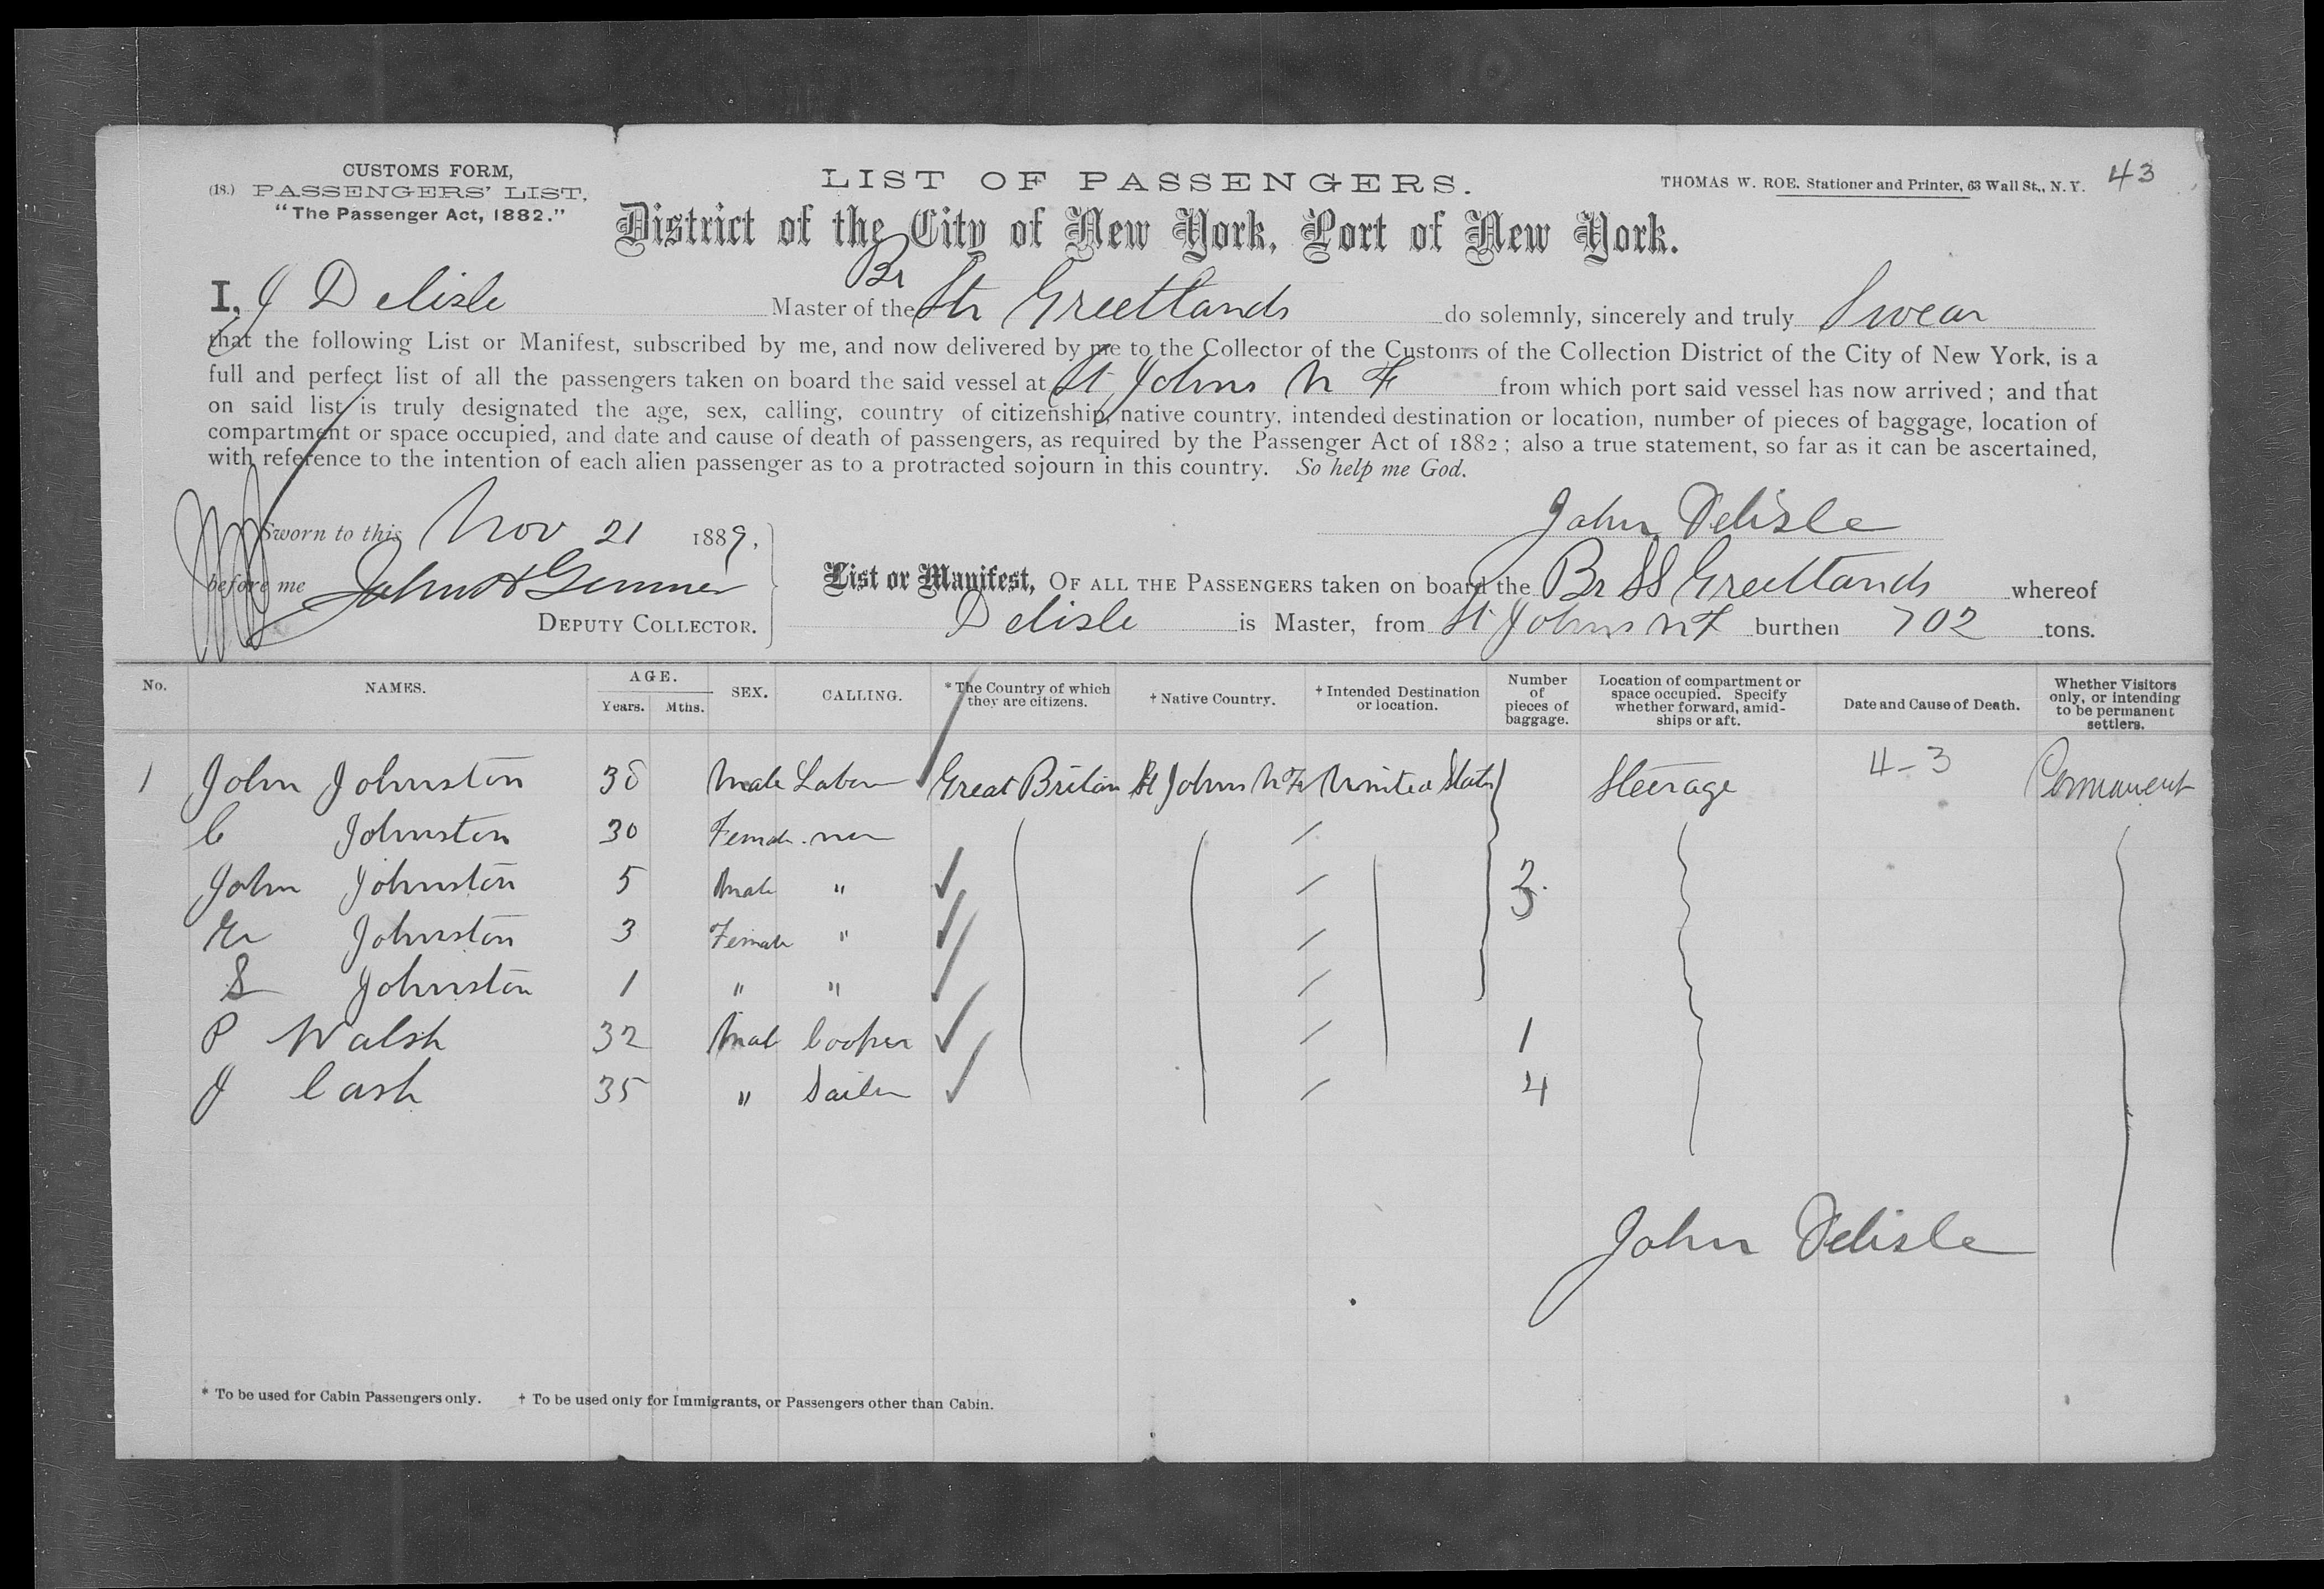 CUSTOMS FORM,
(18.) PASSENGERS' LIST.
"The Passenger Act, 1882."
LIST OF PASSENGERS.
THOMAS W. ROE, Stationer and Printer, 63 Wall St., N. Y. 43
District of the City of New York, Port of New York.
Br
I, J Delisle Master of the Str Greetlands do solemnly, sincerely and truly Swear
that the following List or Manifest, subscribed by me, and now delivered by me to the Collector of the Customs of the Collection District of the City of New York, is a
full and perfect list of all the passengers taken on board the said vessel at St Johns N F from which port said vessel has now arrived; and that
on said list is truly designated the age, sex, calling, country of citizenship, native country, intended destination or location, number of pieces of baggage, location of
compartment or space occupied, and date and cause of death of passengers, as required by the Passenger Act of 1882; also a true statement, so far as it can be ascertained,
with reference to the intention of each alien passenger as to a protracted sojourn in this country. So help me God.
John Delisle
Sworn to this Nov 21 1889,
before me John
DEPUTY COLLECTOR.
List or Manifest, OF ALL THE PASSENGERS taken on board the Br SS Greetlands whereof
Delisle is Master, from St Johns NF burthen 702 tons.
No. NAMES. AGE. Years. Mths. SEX. CALLING. * The Country of which they are citizens. † Native Country. † Intended Destination or location. Number of pieces of baggage. Location of compartment or space occupied. Specify whether forward, amidships or aft. Date and Cause of Death. Whether Visitors only, or intending to be permanent settlers.
1 John Johnston Male Labor Great Britain St Johns NF United States Steerage 4-3 Permanent
C Johnston 30 Female
John Johnston 5 Male "
Johnston 3 Female "
S Johnston 1 " "
P Walsh 32 Male Cooper 1
J Cash 35 " Sailor 4
John Delisle
* To be used for Cabin Passengers only. † To be used only for Immigrants, or Passengers other than Cabin.